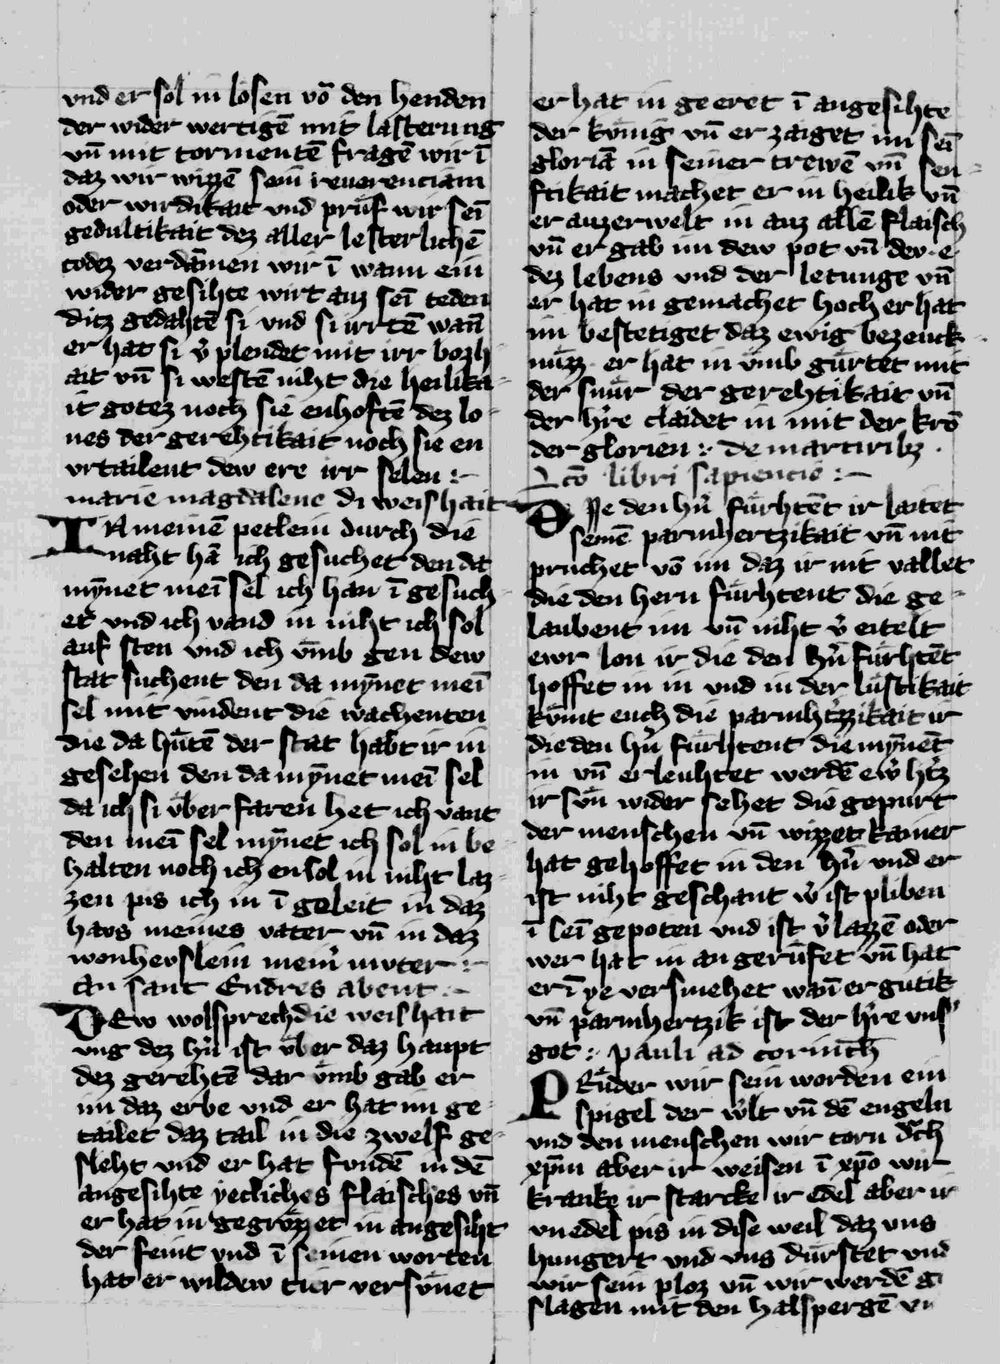 vnd er sol in lösen vō den henden
der wider wertigē mit lasterung
vn̄ mit tormentē fragē wir ī
daz wir wizzē sein reuerenciam
oder wirdikait vnd prüf wir sei
gedultikait dez aller lesterlichē
todez verdāmen wir ī wann ein
wider gesihte wirt auz sei reden
ditz gedahtē si vnd si irrtē wan̄
er hat si v̓ plendet mit irr bozh
ait vn̄ si westē niht die heilika
it gotez noch sie enhoftē dez lo
nes der gerehtikait noch sie en
vrtailent dew ere irr selen :~
marie magdalene di weishait
IN meinē petlein durch die
naht hā ich gesuchet den da
myn̄et mei sel ich han ī gesuch
et vnd ich vand in niht ich sol
auf sten vnd ich vmb gen dew
stat suchent den da myn̄et mei
sel mit vindent die wachenten
die da hütē der stat habt ir in
gesehen den da myn̄et mei sel
da ich si über faren het ich vant
den mei sel myn̄et ich sol in be
halten noch ich ensol in niht laz
zen pis ich in ī geleit in daz
havs meines vater vn̄ in daz
wonhevslein mein̓ mvter :~
An sant Endres abent :~
DEw wolsprechdie weishait
ung dez hn̓ ist über daz haupt
dez gerehtē dar ümb gab er
im daz erbe vnd er hat im ge
tailet daz tail in die zwelf ge
sleht vnd er hat fondē in dē
angesihte yecliches flaisches vn̄
er hat in gegrözzet in angesiht
der feint vnd ī seinen worten
hat er wildew tier versünet
er hat in geeret ī angesihte
der künig vn̄ er zaiget im sei
gloriā in seiner trewē vn̄ sen
ftikait machet er in heilik vn̄
er auzerwelt in auz allē flaisch
vn̄ er gab im dew pot vn̄ dev e
dez lebens vnd der letunge vn̄
er hat in gemachet hoch er hat
im bestetiget daz ewig bezeuck
nüzz er hat in ümb gürtet mit
der snür der gerehtikait vn̄
der hr̓e claidet in mit der krō
der glorien :~ de martiribz .
Lc̄o libri sapiencie :~
DIe den hn̓ fürhtēt ir laitet
seinē parmhertzikait vn̄ nit
pruchet vō im daz ir nit vallet
die den hern fürhtent die ge
laubent im vn̄ niht v̓ eitelt
ewr lon ir die den hn̓ fürhtēt
hoffet in in vnd in der lustikait
kümt euch die parmhtzzikait ir
die den hn̓ fürhtent die myn̄ēt
in vn̄ erleuhtet werdē ew̓ htz
ir sün wider sehet die gepurt
der menschen vn̄ wizzet kainer
hat gehoffet in den hn̓ vnd er
ist niht geschant v̓ ist pliben
ī sei gepoten vnd ist v̓lazzē oder
wer hat in angerüfet vn̄ hat
er ī ye versmehet wan̄ er gutik
vn̄ parmhertzik ist der hr̓e vns̓
got :~ pauli ad corinth̄
PRüder wir sein worden ein
spigel der w̓lt vn̄ dē engeln
vnd den menschen wir torn dch
xp̄m aber ir weisen ī xp̄o wir
kranke ir starcke ir edel aber ir
vnedel pis in dise weil daz vns
hungert vnd vns dürstet vnd
wir sein ploz vn̄ wir werdē g
slagen mit den halspergē v